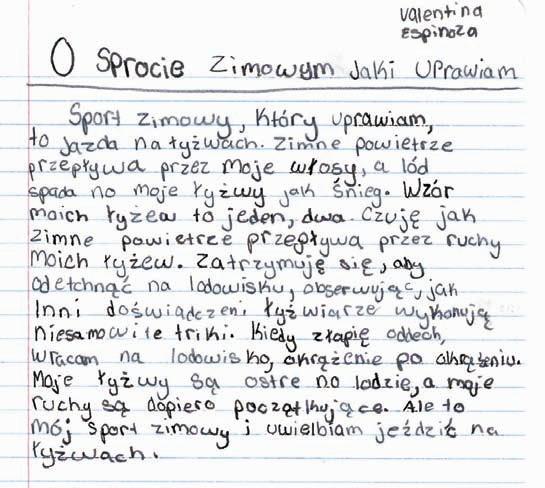 Valentina
Espinoza
O Sprocie Zimowym Jaki Uprawiam
Sport zimowy, który uprawiam,
to jazda na łyżwach. Zimne powietrze
przepływa przez moje włosy, a lód
spada no moje łyżwy jak śnieg. Wzór
moich łyżew to jeden, dwa. Czuję jak
zimne powietrze przepływa przez ruchy
moich łyżew. Zatrzymuję się, aby
odetchnąć na lodowisku, obserwując, jak
Inni doświadczeni łyżwiarze wykonują
niesamowite triki. Kiedy złapię oddech,
wracam na lodowisko, okrążenie po okrążeniu.
Moje łyżwy są ostre no lodzie, a moje
ruchy są dopiero początkujące. Ale to
mój sport zimowy i uwielbiam jeździć na
łyżwach.